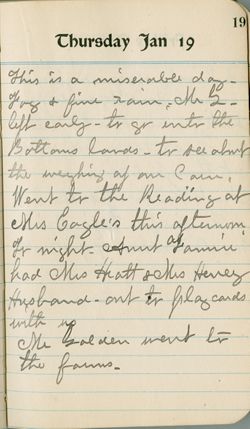 19
Thursday Jan 19
This is a miserable day -
Fog & fine rain. Mr G -
left early - to go into the
Bottoms lands - to see about
the weighing of our Corn.
Went to the Reading at
Mrs Eagle's this afternoon
for night - Aunt Fannie
had Mrs Hratt & Mrs Henrey
Husband - out to play cards
with us
Mr Golden went to
the farms -